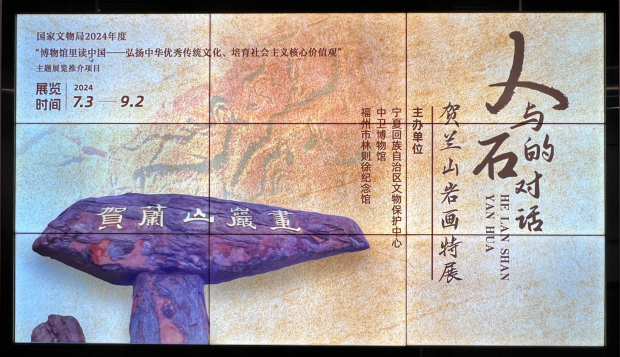 国家文物局2024年度
“博物馆里读中国——弘扬中华优秀传统文化、培育社会主义核心价值观”
主题展览推介项目
展览时间
2024
7.3 — 9.2
人与石的对话
HE LAN SHAN
YAN HUA
贺兰山岩画特展
主办单位
宁夏回族自治区文物保护中心
中卫博物馆
福州市林则徐纪念馆
賀蘭山巖畫